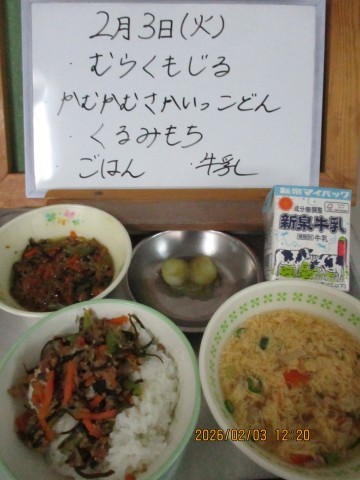 2月3日(火)
・むらくもじる
かむかむさかいっこどん
・くるみもち
・ごはん ・牛乳
新泉マイパック
成分無調整
新泉牛乳
牛乳
2026/02/03 12:20